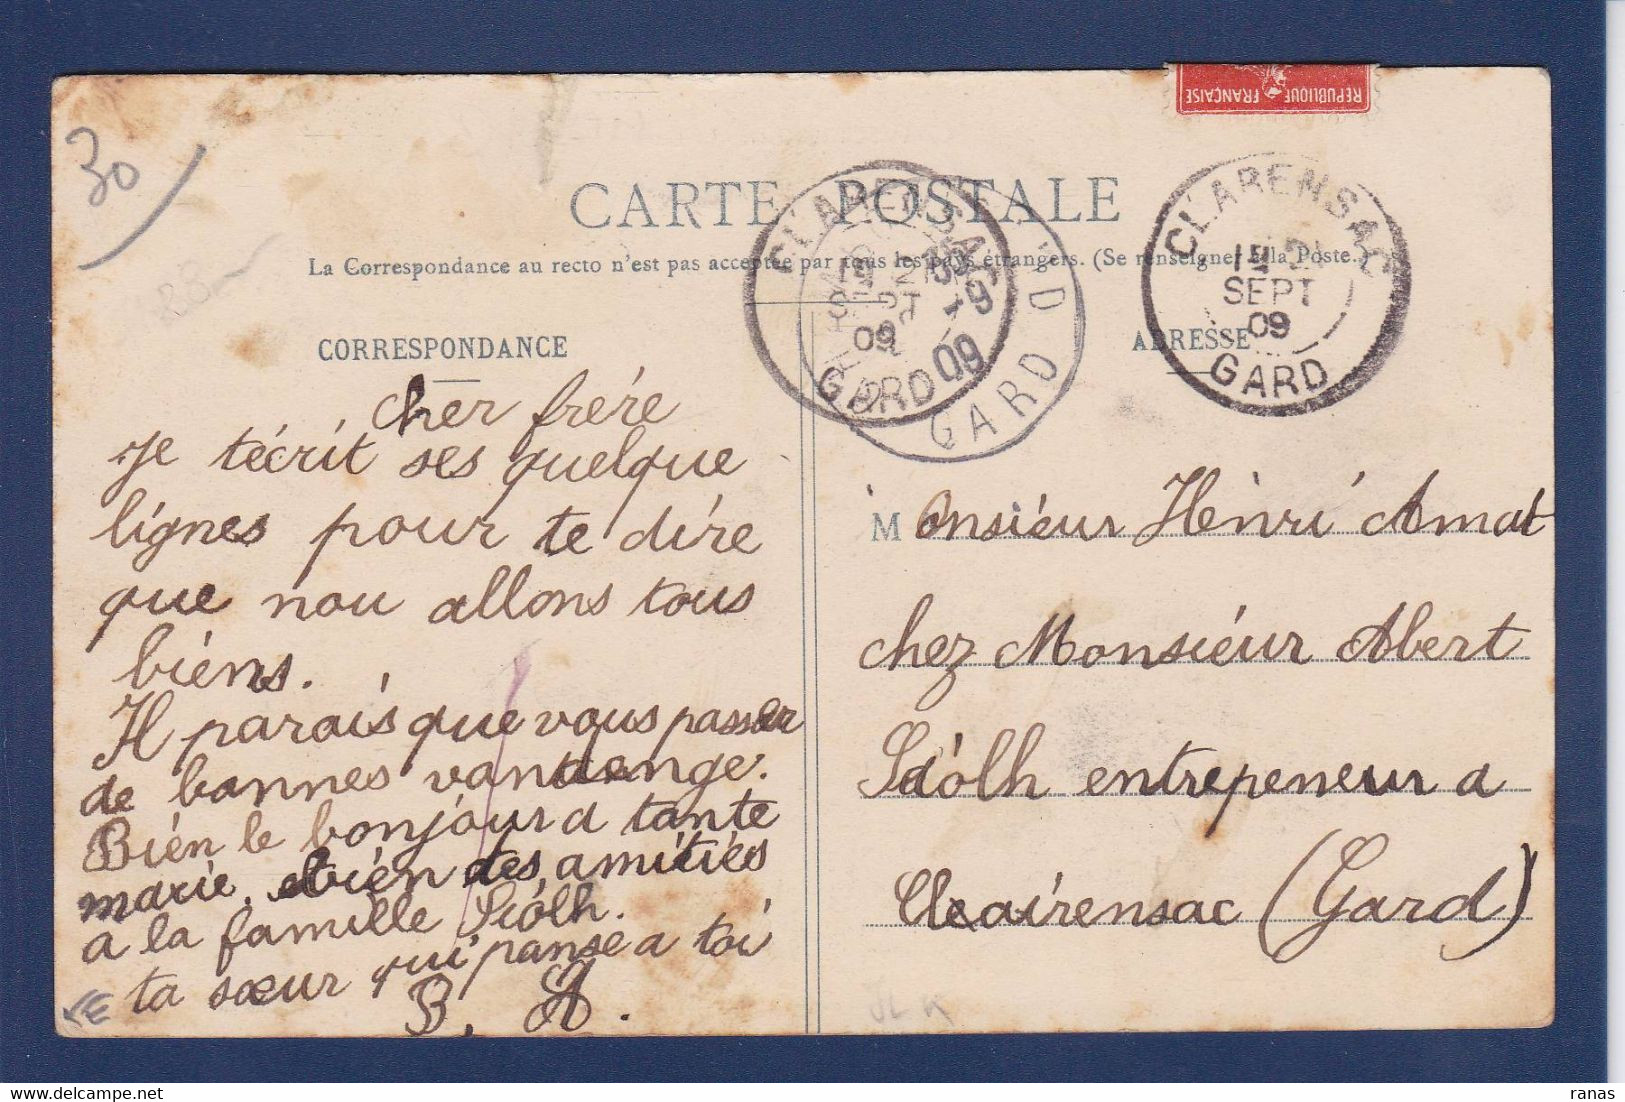 REPUBLIQUE FRANÇAISE
30
CARTE POSTALE
La Correspondance au recto n'est pas acceptée par tous les pays étrangers. (Se renseigner à la Poste.)
CLARENSAC
SEPT
09
GARD
CLARENSAC
SEPT
09
GARD
09
GARD
CORRESPONDANCE
ADRESSE
cher frére
Je técrit ses quelque
lignes pour te dire
que nou allons tous
biens.
Il parais que vous passer
de bonnes vandenge.
Bién le bonjour a tante
marie. et bién des amitiés
a la famille Siólh.
ta sœur qui panse a toi
B. A.
Monsiéur Hénri Amat
chez Monsiéur Abert
entrepeneur a
Cleairensac (Gard)
ranas